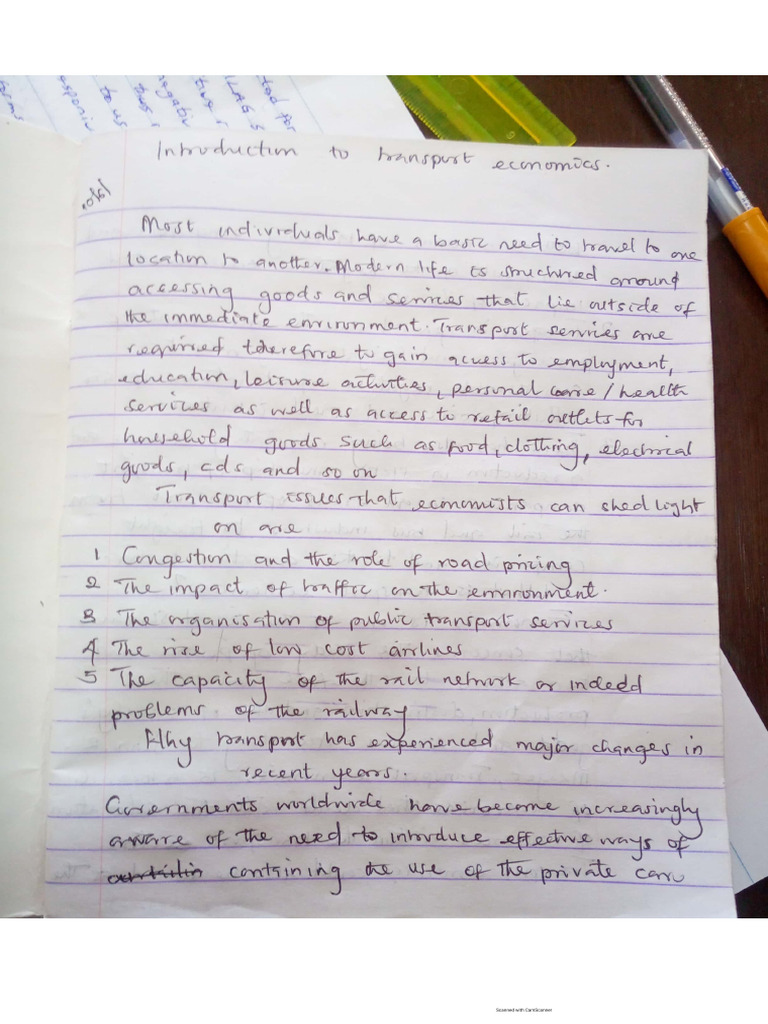 Introduction to transport economics.
Most individuals have a basic need to travel to one
location to another. Modern life is structured around
accessing goods and services that lie outside of
the immediate environment. Transport services are
required therefore to gain access to employment,
education, leisure activities, personal care / health
services as well as access to retail outlets for
household goods such as food, clothing, electrical
goods, cds and so on
Transport issues that economists can shed light
on are
1 Congestion and the role of road pricing
2 The impact of traffic on the environment.
3 The organisation of public transport services
4 The rise of low cost airlines
5 The capacity of the rail network or indeed
problems of the railway
Why transport has experienced major changes in
recent years.
Governments worldwide have become increasingly
aware of the need to introduce effective ways of
containing the use of the private car
Scanned with CamScanner